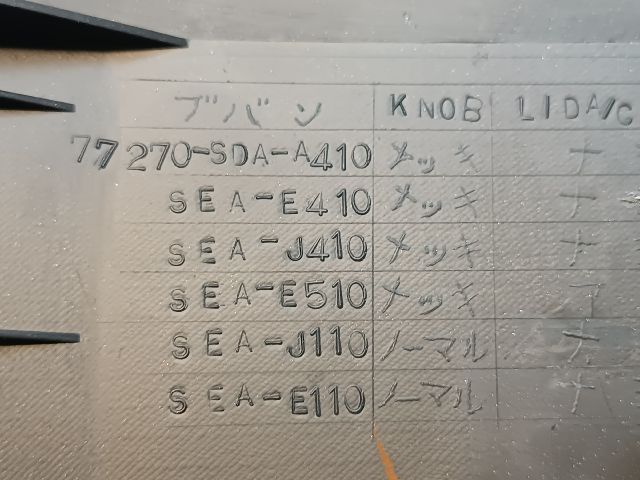 ブバン KNOB LIDA/C
77270-SDA-A410 メッキ ナ
SEA-E410 メッキ ナ
SEA-J410 メッキ ナ
SEA-E510 メッキ
SEA-J110 ノーマル ナ
SEA-E110 ノーマル ナ